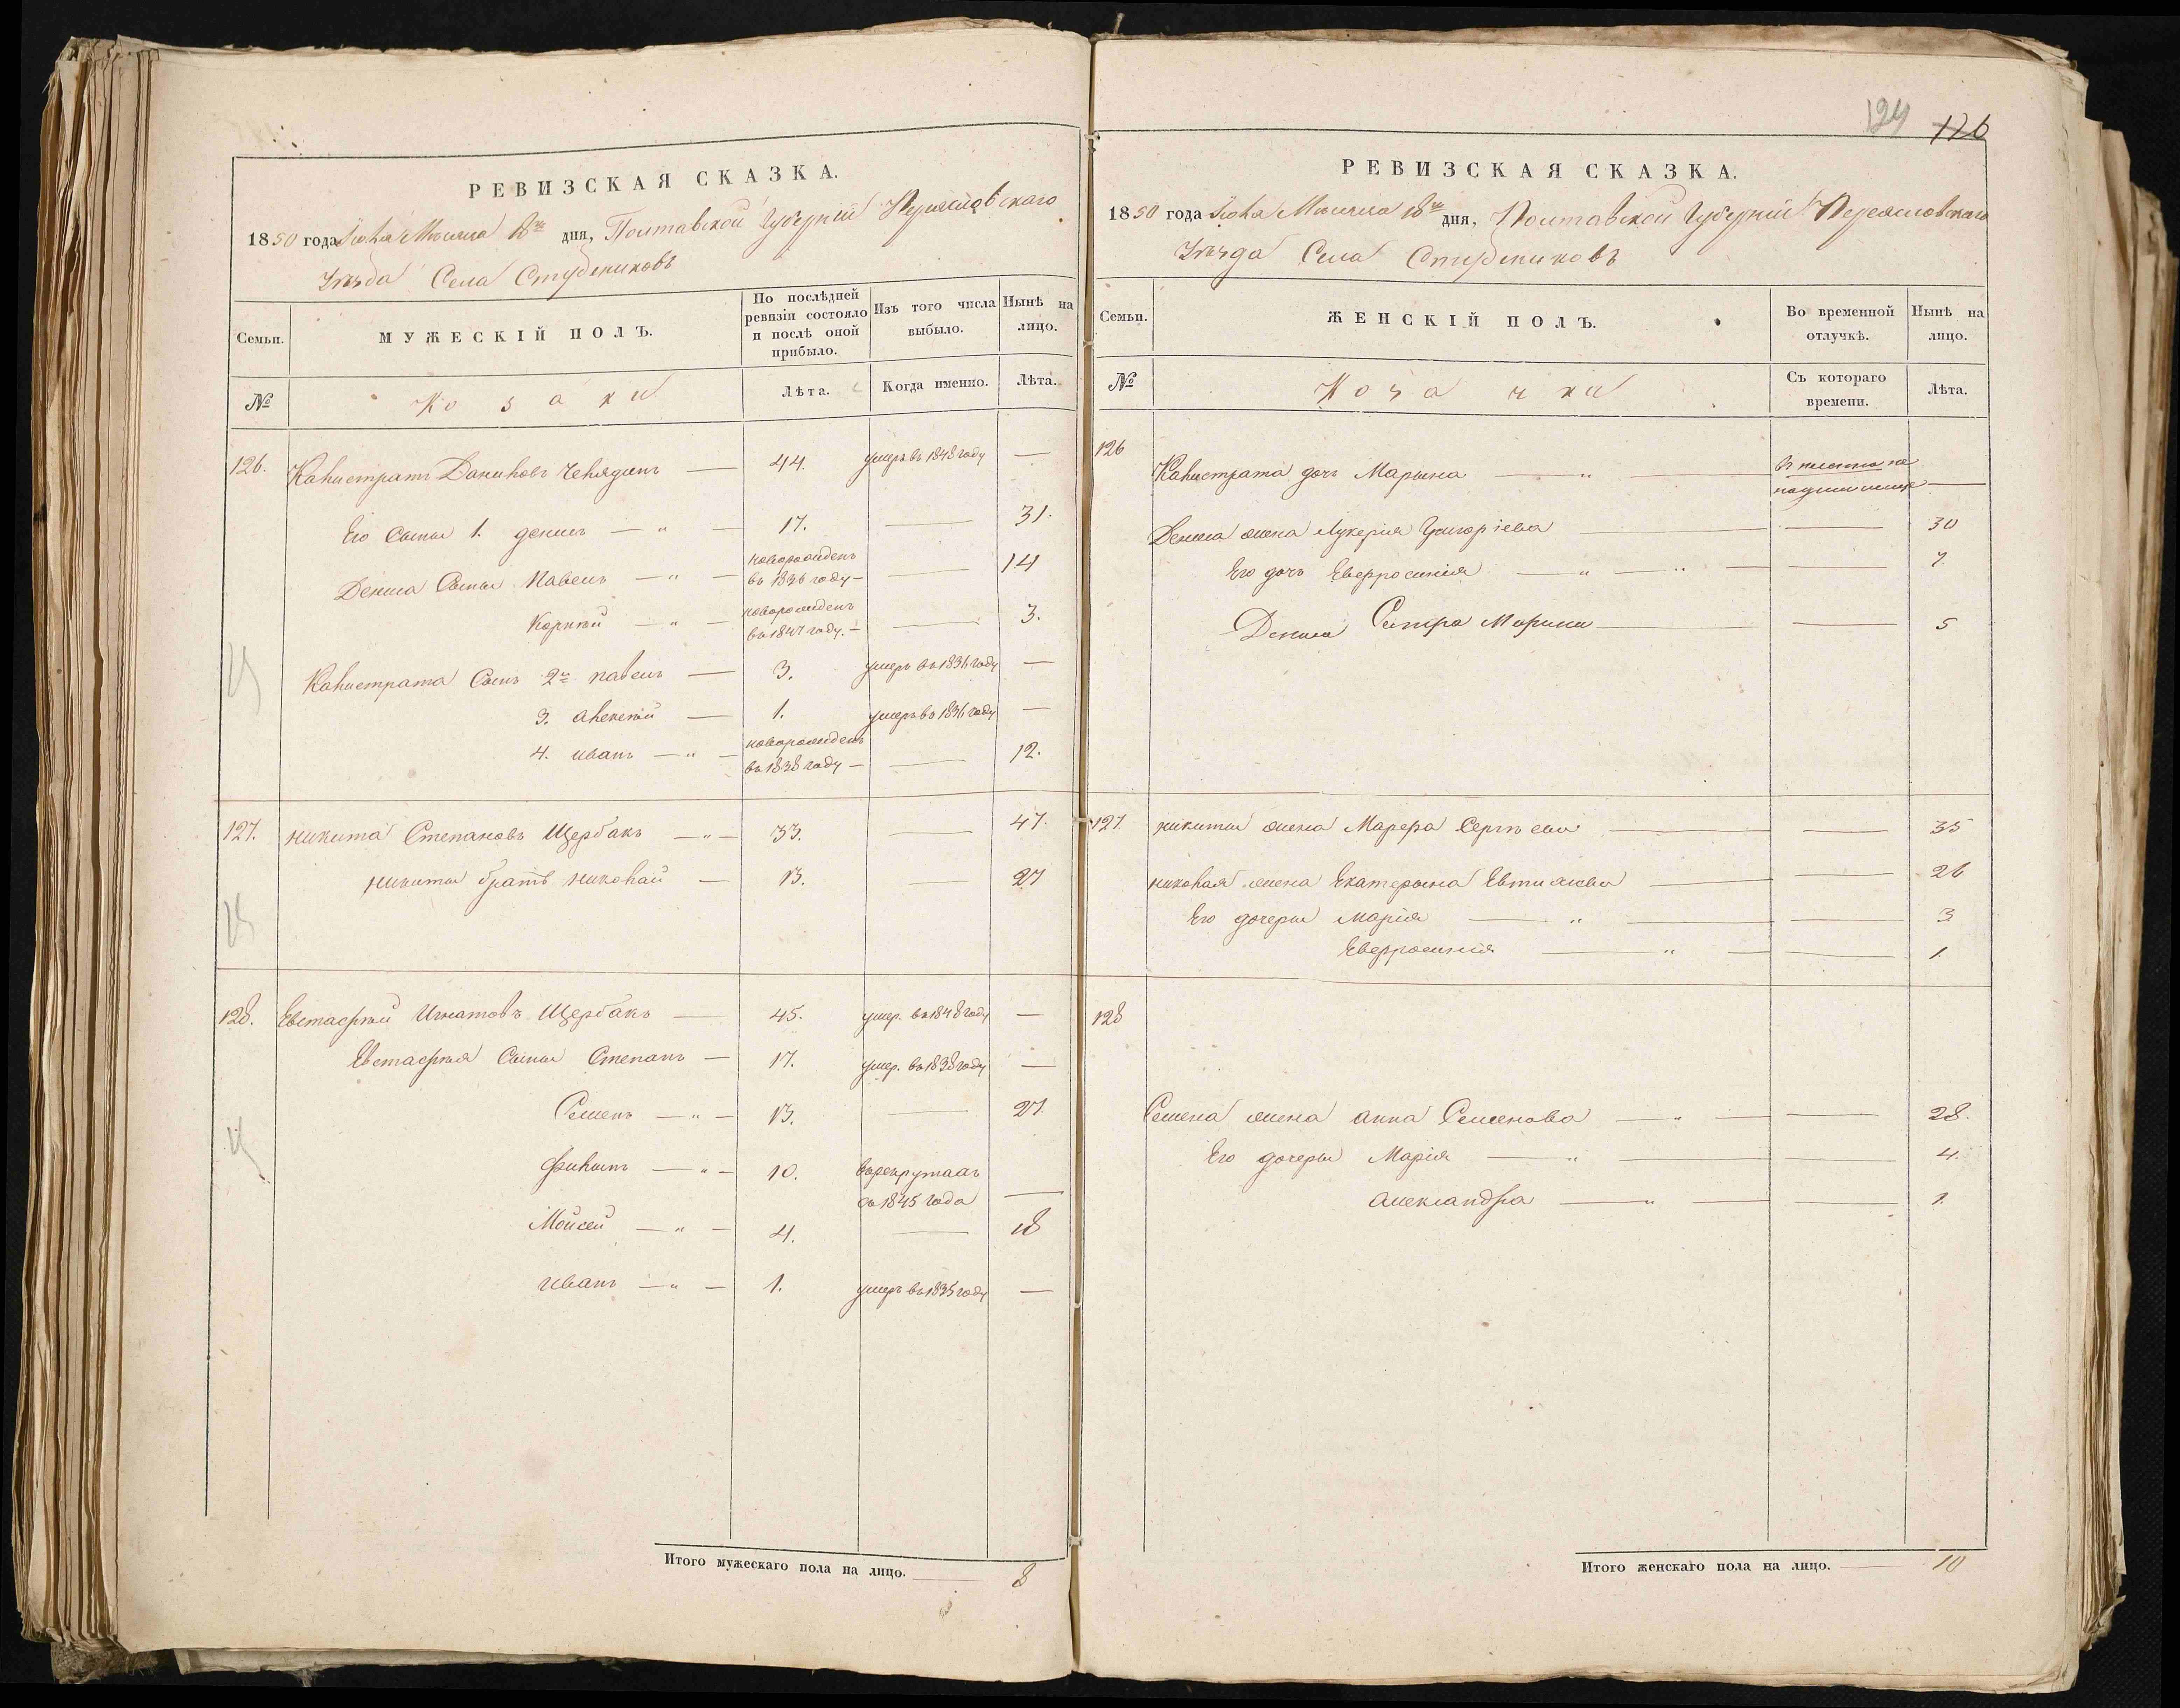 РЕВИЗСКАЯ СКАЗКА.
1850 года Июля Мѣсяца 18го дня, Полтавской Губерніи Переяславскаго
Уѣзда Села Студениковъ
Семьи.
МУЖЕСКІЙ ПОЛЪ.
По послѣдней ревизіи состояло и послѣ оной прибыло.
Изъ того числа выбыло.
Нынѣ на лицо.
№
Козаки
Лѣта.
Когда именно.
Лѣта.
126. Калистратъ Даниловъ 44. умеръ въ 1848 году —
Его Сыны 1. денисъ — " — 17. — 31.
Дениса Сыны Павелъ — " — новорожденъ въ 1836 году — — 14
Корнѣй — " — новорожденъ въ 1847 году. — — 3.
Калистрата Сынъ 2й павелъ — 3. умеръ въ 1836 году —
3. алексѣй — 1. умеръ въ 1836 году —
4. иванъ — " — новорожденъ въ 1838 году — — 12.
127. никита Степановъ Щербакъ — " — 33. — 47.
никиты братъ николай — 13. — 27
128. Евстафій Игнатовъ Щербакъ — 45. умер. въ 1848 году —
Евстафія Сыны Степанъ — 17. умер. въ 1838 году —
Семенъ — " — 13. — 27.
филипъ — " — 10. въ рекрутахъ съ 1845 года —
Мойсей — " — 4. — 18
иванъ — " — 1. умеръ въ 1835 году —
Итого мужескаго пола на лицо. — 8
124 126
РЕВИЗСКАЯ СКАЗКА.
1850 года Июля Мѣсяца 18го дня, Полтавской Губерніи Переяславскаго
Уѣзда Села Студениковъ
Семьи.
ЖЕНСКІЙ ПОЛЪ.
Во временной отлучкѣ.
Нынѣ на лицо.
№
Козачки
Съ котораго времени.
Лѣта.
126 Калистрата дочь Марына — " — —
Дениса жена Лукерія Григоріева — — 30
Его дочь Евфросинія — " — " — 7
Дениса Сестра Марина — — 5
127. никиты жена Марфа Сергѣева — — 35
николая жена Екатерына — — 26
Его дочеры Марія — " — — 3
Евфросинія — " — — 1.
128
Семена жена анна Семенова — " — — 28.
Его дочеры Марія — " — — 4.
александра — " — — 1.
Итого женскаго пола на лицо. — 10